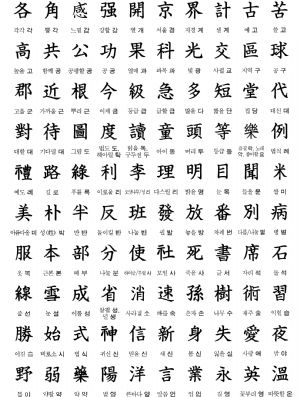 各角感强開京界計古苦
각각 각 뿔 각 느낄 감 강할 강 열 개 서울 경 지경 계 셀 계 예 고 쓸 고
高共公功果科光交區球
높을 고 함께 공 공평할 공 공 공 열매 과 과목 과 빛 광 사귈 교 지역 구 공 구
郡近根今急多短堂代
고을 군 가까울 근 뿌리 근 이제 금 등급 급 급할 급 많을 다 짧을 단 집 당 대신 대
對待圖度讀童頭等樂例
대할 대 기다릴 대 그림 도 아이 동 머리 두 등급 등 법식 례
禮路綠利李理明目聞米
예도 례 길 로 푸를 록 이로울 리 다스릴 리 밝을 명 눈 목 들을 문 쌀 미
美朴半反班發放番別病
아름다울 미 반 반 돌이킬 반 나눌 반 필 발 놓을 방 차례 번 병 병
服本部分使社死書席石
옷 복 근본 본 떼 부 나눌 분 모일 사 죽을 사 글 서 자리 석 돌 석
線雪成省消速孫樹術習
줄 선 눈 설 이룰 성 사라질 소 빠를 속 손자 손 나무 수 재주 술 익힐 습
勝始式神信新身失愛夜
이길 승 비로소 시 법 식 귀신 신 믿을 신 새 신 몸 신 잃을 실 사랑 애 밤 야
野弱藥陽洋言業永英溫
들 야 약할 약 약 약 볕 양 큰바다 양 말씀 언 업 업 길 영 꽃부리 영 따뜻할 온